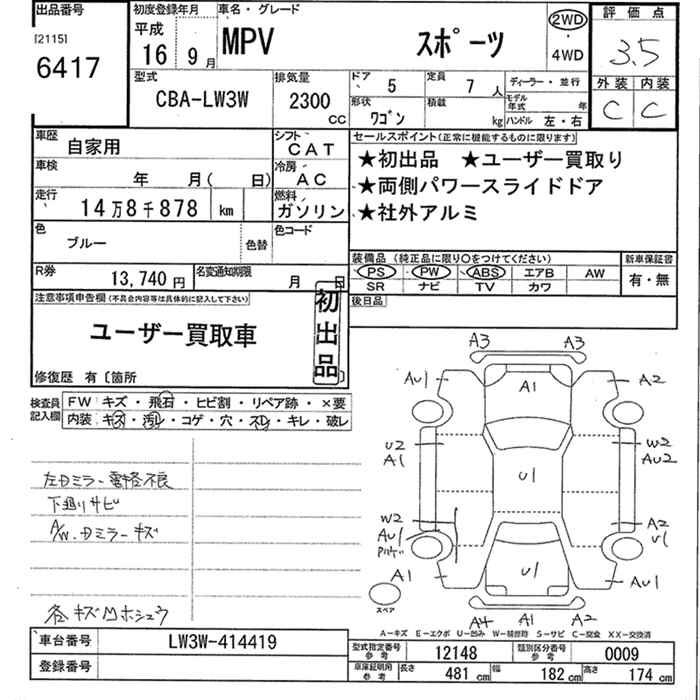 出品番号
[2115]
6417
初度登録年月
平成
16 9月
車名・グレード
MPV スポーツ
2WD
4WD
評価点
3.5
外装 内装
C C
型式
CBA-LW3W
排気量
2300
cc
ドア 5
形状 ワゴン
定員 7人
積載 kg
ディーラー・並行
モデル年式 年
ハンドル 左・右
車歴
自家用
シフト
CAT
車検
年 月( 日)
冷房
AC
走行
14万8千878 km
燃料
ガソリン
色
ブルー
色替
色コード
R券
13,740円
名変通知期限
月 日
セールスポイント(正常に機能するものに限ります)
★初出品 ★ユーザー買取り
★両側パワースライドドア
★社外アルミ
装備品 (純正品に限り○をつけてください)
PS PW ABS エアB AW
SR ナビ TV カワ
新車保証書
有・無
後日品
注意事項申告欄(不具合内容等は具体的に記入して下さい)
ユーザー買取車
初出品
修復歴 有〔箇所
検査員記入欄
FW キズ・飛石・ヒビ割・リペア跡・×要
内装 キズ・汚レ・コゲ・穴・スレ・キレ・破レ
左Dミラー電格不良
下廻りサビ
A/W.Dミラーキズ
各キズ凹ホシュウ
A3 A3
AU1 A1 A2
U2 A1
W2 AU2
U1
W2 AU1
A2 U1
A1 U1 AU1
スペア
A4 A1 A2
A-キズ E-エクボ U-凹み W-補修跡 S-サビ C-腐食 XX-交換済
車台番号
LW3W-414419
登録番号
型式指定番号 参考
12148
類別区分番号 参考
0009
車庫証明用 参考
長さ 481cm 幅 182cm 高さ 174cm